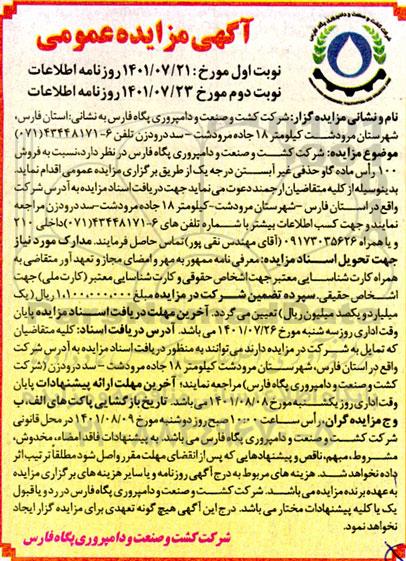 شرکت کشت و صنعت و دامپروری پگاه فارس
آگهی مزایده عمومی
نوبت اول مورخ : ۱۴۰۱/۰۷/۲۱ روزنامه اطلاعات
نوبت دوم مورخ ۱۴۰۱/۰۷/۲۳ روزنامه اطلاعات
نام و نشانی مزایده گزار: شرکت کشت و صنعت و دامپروری پگاه فارس به نشانی: استان فارس،
شهرستان مرودشت کیلومتر ۱۸ جاده مرودشت - سد درودزن تلفن ۶-۴۳۴۴۸۱۷۱(۰۷۱)
موضوع مزایده: شرکت کشت و صنعت و دامپروری پگاه فارس در نظر دارد، نسبت به فروش
۱۰۰ راس ماده گاو حذفی غیر آبستن درجه یک از طریق برگزاری مزایده عمومی اقدام نماید.
بدینوسیله از کلیه متقاضیان ارجمند دعوت می نماید جهت دریافت اسناد مزایده به آدرس شرکت
واقع در استان فارس -شهرستان مرودشت- کیلومتر ۱۸ جاده مرودشت-سد درودزن مراجعه
نمایند و جهت کسب اطلاعات بیشتر با شماره تلفن های ۶-۴۳۴۴۸۱۷۱(۰۷۱)داخلی ۲۱۰
و یا همراه ۰۹۱۷۳۰۳۵۶۲۶ (آقای مهندس نقی پور) تماس حاصل فرمایند. مدارک مورد نیاز
جهت تحویل اسناد مزایده: معرفی نامه ممهور به مهر و امضای مجاز و تعهد آور متقاضی به
همراه کارت شناسایی معتبر جهت اشخاص حقوقی و کارت شناسایی معتبر (کارت ملی) جهت
اشخاص حقیقی. سپرده تضمین شرکت در مزایده مبلغ ۱.۱۰۰.۰۰۰.۰۰۰ ریال (یک
میلیارد و یکصد میلیون ریال) تعیین می گردد. آخرین مهلت دریافت اسناد مزایده پایان
وقت اداری روز سه شنبه مورخ ۱۴۰۱/۰۷/۲۶ می باشد. آدرس دریافت اسناد: کلیه متقاضیان
که تمایل به شرکت در مزایده دارند می توانند به منظور دریافت اسناد مزایده به آدرس شرکت
واقع در استان فارس، شهرستان مرودشت کیلومتر ۱۸ جاده مرودشت - سد درودزن (شرکت
کشت و صنعت و دامپروری پگاه فارس) مراجعه نمایند؛ آخرین مهلت ارائه پیشنهادات پایان
وقت اداری روز یکشنبه مورخ ۱۴۰۱/۰۸/۰۸ می باشد. تاریخ بازگشایی پاکت های الف ب
و ج مزایده گران، رأس ساعت ۱۰:۰۰ صبح روز دوشنبه مورخ ۱۴۰۱/۰۸/۰۹ در محل قانونی
شرکت کشت و صنعت و دامپروری پگاه فارس می باشد. به پیشنهادات فاقد امضاء، مخدوش،
مشروط، مبهم، ناقص و پیشنهادهایی که پس از انقضای مهلت مقرر واصل شود مطلقاً ترتیب اثر
داده نخواهد شد. هزینه های مربوط به درج آگهی روزنامه و یا سایر هزینه های برگزاری مزایده
به عهده برنده مزایده می باشد. شرکت کشت و صنعت و دامپروری پگاه فارس در رد و یا قبول
یک یا کلیه پیشنهادات مختار می باشد. درج این آگهی هیچ گونه تعهدی برای مزایده گزار ایجاد
نخواهد نمود.
شرکت کشت و صنعت و دامپروری پگاه فارس